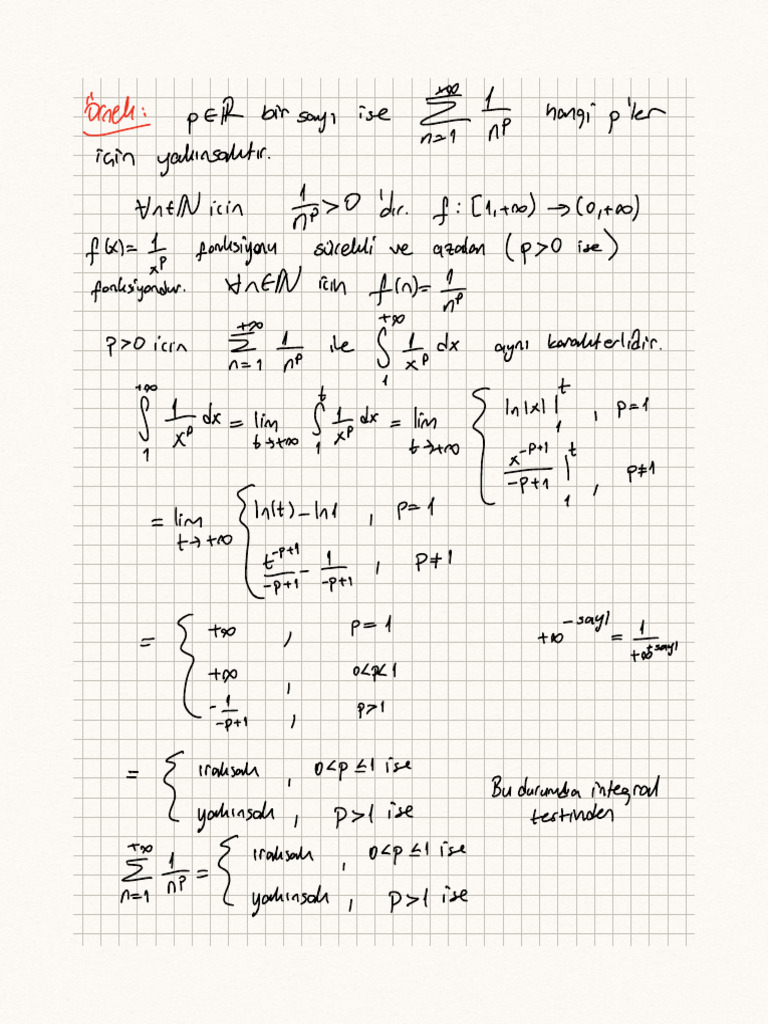 Örnek: p∈ℝ bir sayı ise ∑_{n=1}^{+∞} 1/n^p hangi p'ler
için yakınsaktır.
∀n∈ℕ icin 1/n^p > 0 'dır. f : [1,+∞) → (0,+∞)
f(x) = 1/x^p fonksiyonu sürekli ve azalan (p>0 ise)
fonksiyondur. ∀n∈ℕ icin f(n) = 1/n^p
p>0 icin ∑_{n=1}^{+∞} 1/n^p ile ∫_1^{+∞} 1/x^p dx aynı karakterlidir.
∫_1^{+∞} 1/x^p dx = lim_{t→+∞} ∫_1^t 1/x^p dx = lim_{t→+∞} { ln|x| |_1^t , p=1
x^{-p+1}/(-p+1) |_1^t , p≠1
= lim_{t→+∞} { ln(t) - ln1 , p=1
t^{-p+1}/(-p+1) - 1/(-p+1) , p≠1
= { +∞ , p=1
+∞^{-sayı} = 1/(+∞^{+sayı})
+∞ , 0<p<1
-1/(-p+1) , p>1
= { ıraksak , 0<p≤1 ise
yakınsak , p>1 ise
Bu durumda integral
testinden
∑_{n=1}^{+∞} 1/n^p = { ıraksak , 0<p≤1 ise
yakınsak , p>1 ise